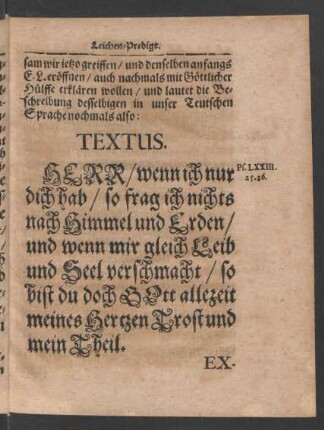 Leichen-Predigt.
sam wir ietzo greiffen / und denselben anfangs
E. L. eröffnen / auch nachmals mit Göttlicher
Hülffe erklären wollen / und lautet die Be-
schreibung desselbigen in unser Teutschen
Sprache nochmals also:
TEXTUS.
HERR / wenn ich nur
dich hab / so frag ich nichts
nach Himmel und Erden /
und wenn mir gleich Leib
und Seel verschmacht / so
bist du doch GOtt allezeit
meines Hertzen Trost und
mein Theil.
Ps. LXXIII.
25. 26.
EX-